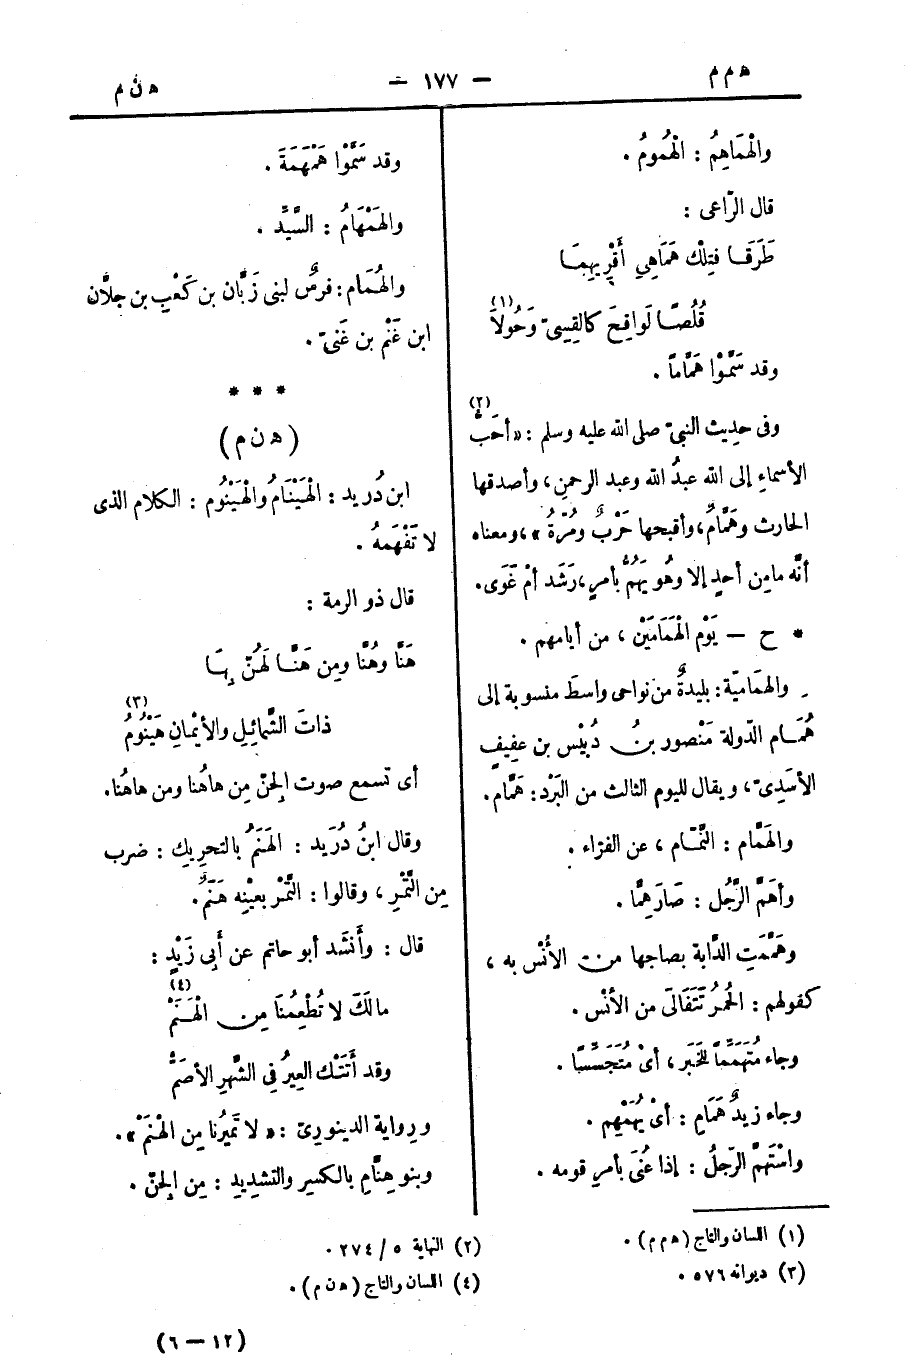 ه م م
— ١٧٧ —
ه ن م
والْهَمَاهِمُ : الْهُمُومُ .
قال الرّاعى :
طَرَقَـا فتِلْك هَمَاهِىِ أَقْرِيهِمَـا
قُلُصًـا لَواقِحَ كالقِسِىّ وَحُولاَ (١)
وقد سَمَّوْا هَمَّاماً .
وفى حديث النبىّ صلى الله عليه وسلم : « أحَبُّ (٢)
الأسماءِ إلى الله عبدُ الله وعبد الرحمنِ ، وأصدقها
الحارث وهَمَّامٌ ، وأقبحها حَرْبٌ ومُرّةُ » ، ومعناه
أنّه مامِن أحدٍ إلا وهُو يَهُمُّ بأمرٍ ، رَشَد أمْ غَوَى .
* ح — يَوْم الْهَمَامَيْن ، من أيامهم .
والهمَامِيّة : بليدةٌ من نواحى واسطَ منسوبة إلى
هُمَـام الدّولة مَنْصور بنُ دُبَيْس بن عفِيفٍ
الأسَدِىّ ، ويقال لليوم الثالث من البَرْد : هَمَّام .
والهَمَّام : النَّمّام ، عن الفرّاء .
وأهَمَّ الرَّجُل : صَارَهِمًّا .
وهَمَّمَتِ الدّابة بصاحبها من الأُنْس به ،
كقولهم : الحُمرُ تَتَفَالَى من الأنْس .
وجاء مُتَهَمِّماً للخَبَر ، أىْ مُتَجَسِّسًا .
وجاء زيدٌ هَمَامِ : أىْ يُهَمْهِم .
واسْتَهَمَّ الرّجلُ : إذا عُنىَ بأمرِ قومه .
وقد سَمَّوْا هَمْهَمَةَ .
والهَمْهَامُ : السَّيِّد .
والهُمَام : فرسٌ لبنى زَبَّان بن كَعْبِ بن جلاّن
ابن غَنْم بن غَنىّ .
* * *
( ه ن م )
ابن دُريد : الْهَيْنَامُ والْهَيْنُوم : الكلام الذى
لا تَفْهَمهُ .
قال ذو الرمة :
هَنَّا وهُنَّا ومِن هَنَّـا لَهُنّ بِهـَا
ذاتَ الشَّمائِلِ والأيْمانِ هَيْنُومُ (٣)
أى تسمع صوت الجِنّ مِن هاهُنا ومن هاهُنا .
وقال ابنُ دُرَيد : الهَنَمُ بالتحرِيكِ : ضرب
مِن التَّمْرِ ، وقالوا : التَّمْر بعيْنِه هَنَمٌ .
قال : وأَنشَد أبو حاتم عن أبى زَيْدٍ :
مالَكَ لا تُطْعِمُنَا مِن الْهَنَمْ (٤)
وقد أَتَتْك العِيرُ فى الشَّهرِ الأصَمُّ
ورواية الدينورىّ : « لا تَميُرنا مِن الهْنَمْ » .
وبنو هِنَّامِ بالكسرِ والتشديدِ : مِن الجِنّ .
(١) اللسان والتاج ( ه م م ) .
(٢) النهاية ٥ / ٢٧٤ .
(٣) ديوانه ٥٧٦ .
(٤) اللسان والتاج ( ه ن م ) .
(١٢ — ٦)